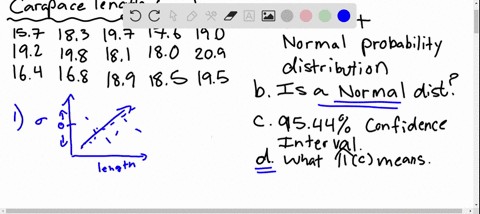 Carapace length
15.7 18.3 19.7 17.6 19.0
19.2 19.8 18.1 18.0 20.9
16.4 16.8 18.9 18.5 19.5
1) σ
0
length
+
Normal probability
distribution
b. Is a Normal dist?
c. 95.44% Confidence
Interval.
d. what (c) means.